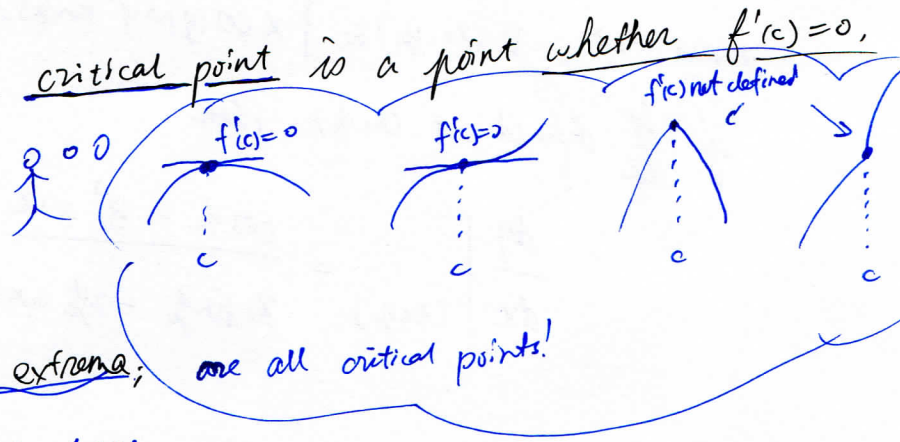 critical point is a point whether f'(c)=0,
f'(c)=0
f'(c)=0
f'(c) not defined
c
c
c
c
c
extrema;
are all critical points!